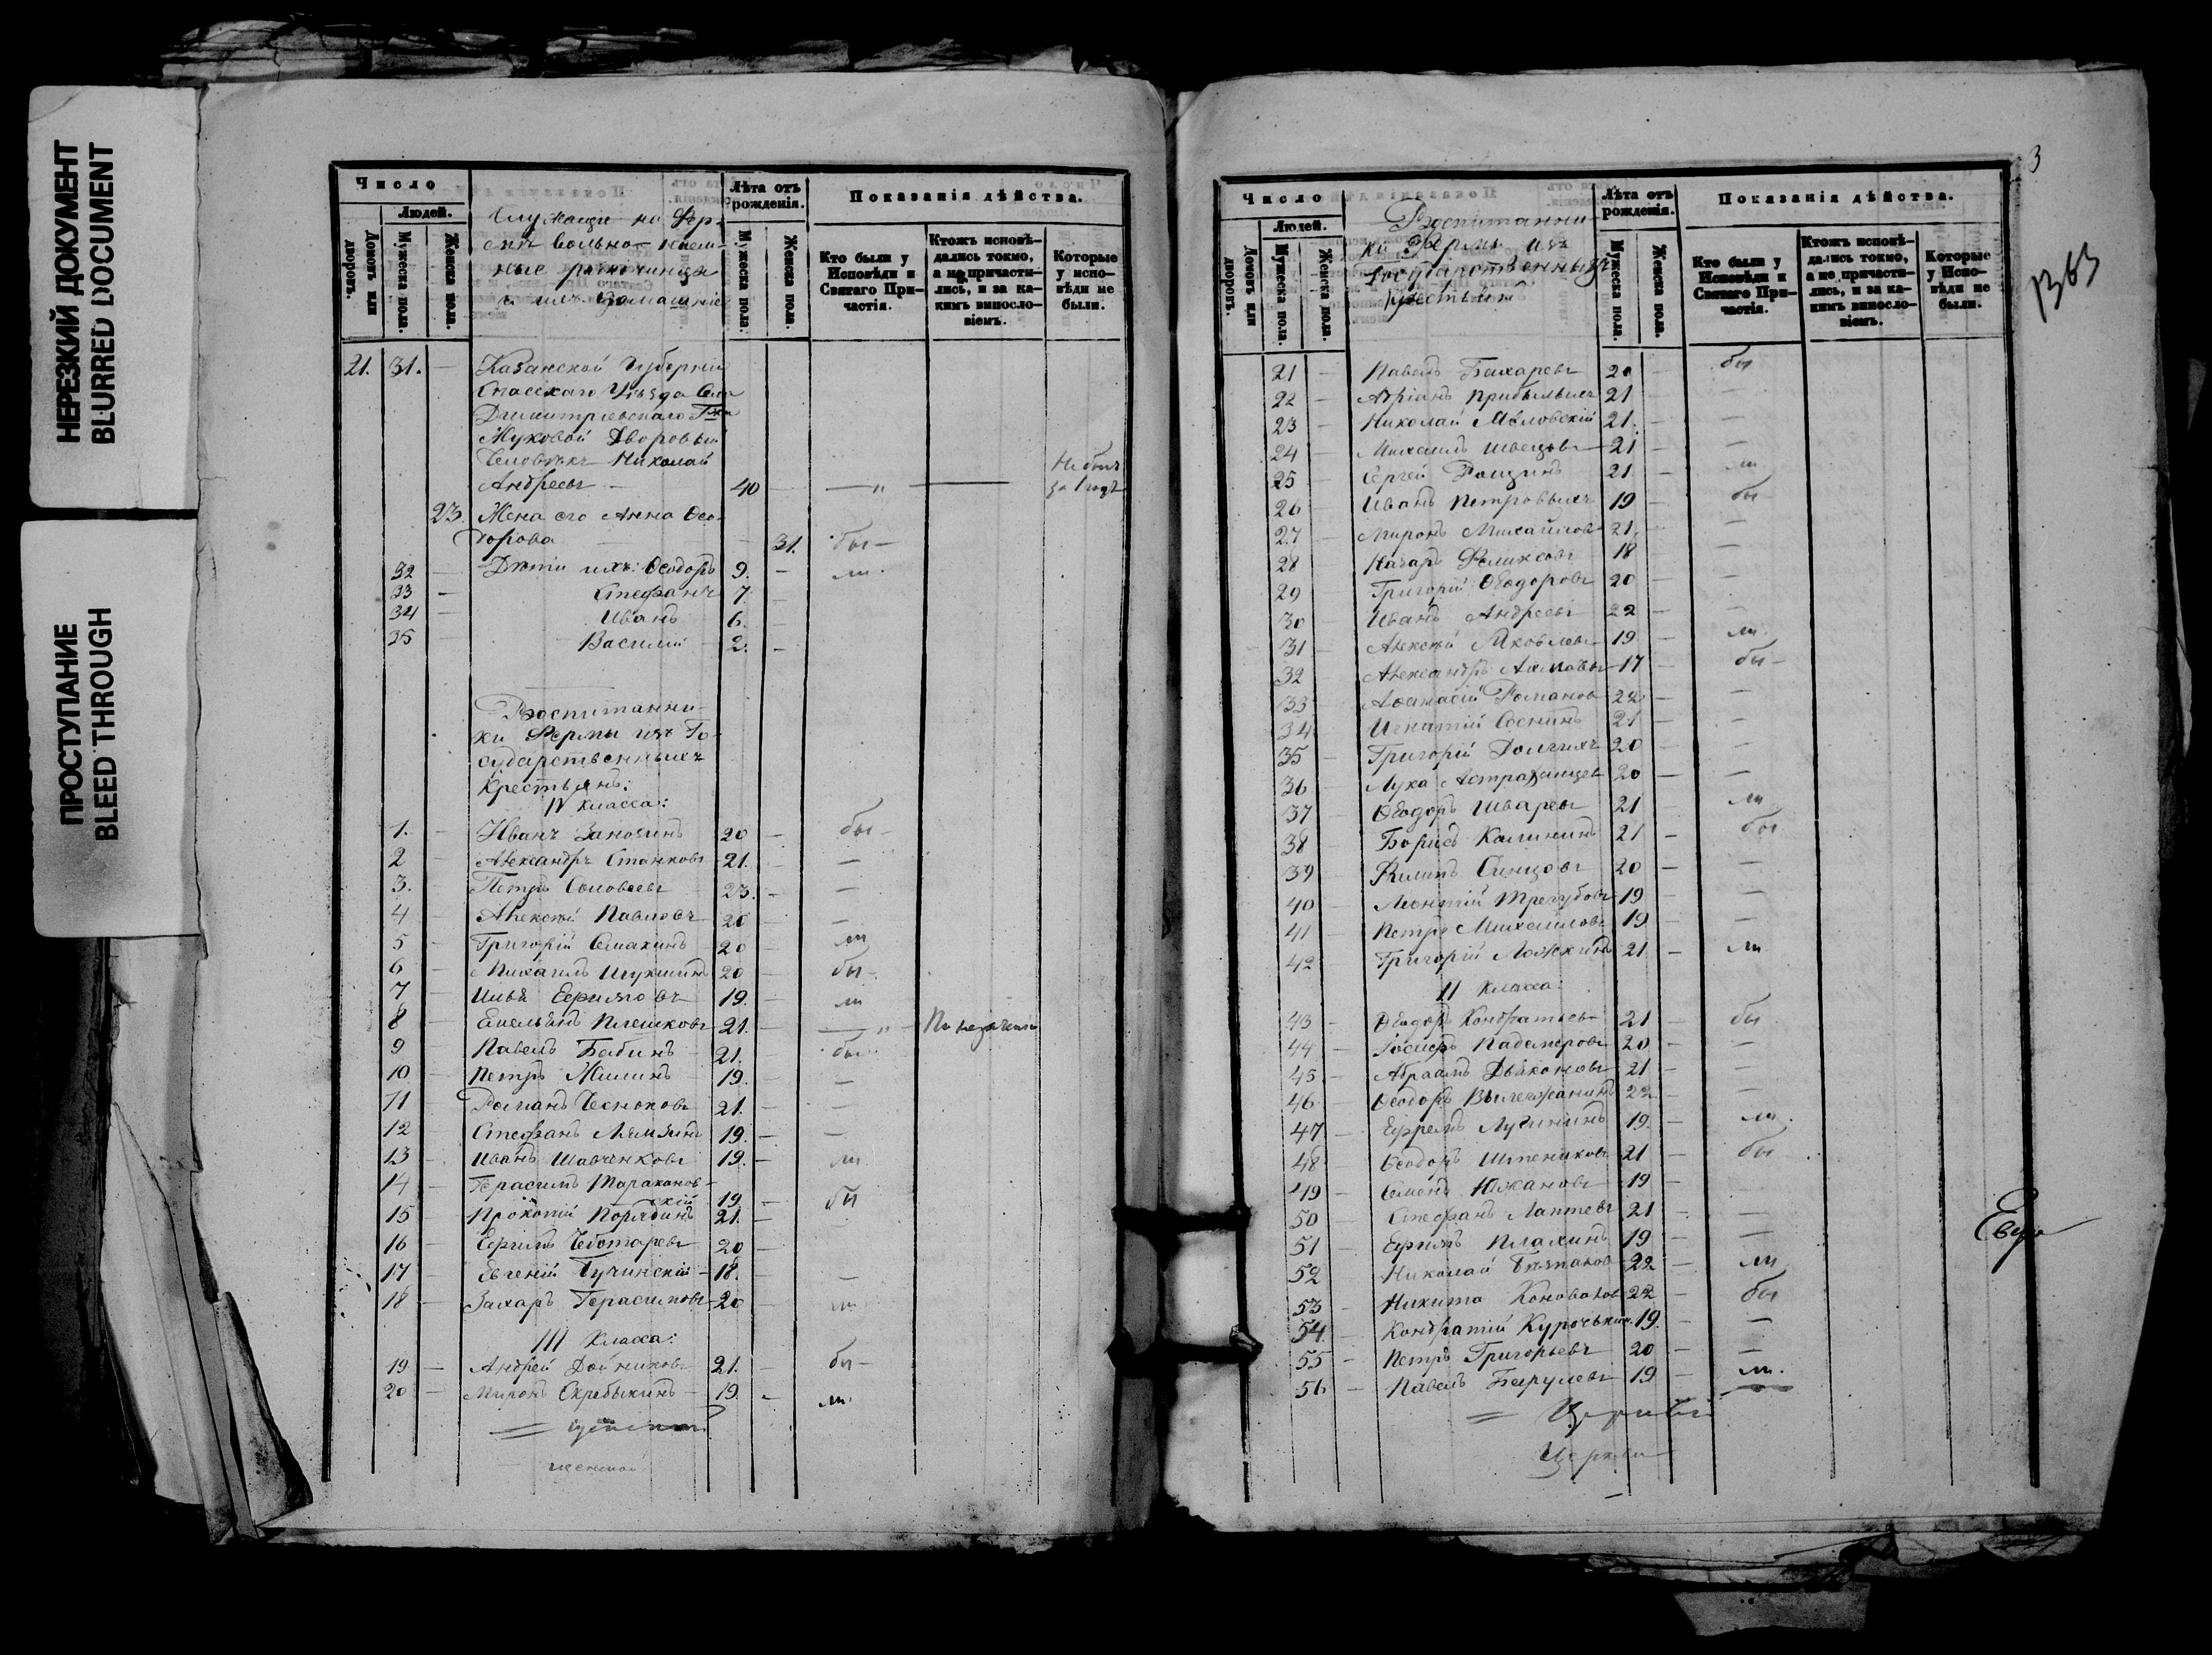 НЕРЕЗКИЙ ДОКУМЕНТ
BLURRED DOCUMENT
ПРОСТУПАНИЕ
BLEED THROUGH
Число
Людей.
Домовъ или дворовъ.
Мужеска пола.
Женска пола.
Служащіе на Фер-
мѣ вольно-наем-
ные разночинцы
и ихъ домашніе
Лѣта отъ рожденія.
Мужеска пола.
Женска пола.
Показанія дѣйства.
Кто были у Исповѣди и Святаго Причастія.
Ктожъ исповѣдались токмо, а не причастились, и за какимъ винословіемъ.
Которые у исповѣди не были.
21. 31. — Казанской Губерніи
Спасскаго Уѣзда Села
Димитріевскаго
Жуковой Дворовый
Человѣкъ Николай
Андреевъ — 40 Не былъ
23. Жена его Анна Ѳео-
дорова 31. бы—
32 — Дѣти ихъ: Ѳеодоръ 9. — ли.
33 — Стефанъ 7. —
34 — Иванъ 6. —
35 — Василій 2. —
Воспитанни-
ки Фермы изъ Го-
сударственныхъ
Крестьянъ:
IV класса:
1. — Иванъ Заногинъ 20 — бы—
2 — Александръ Станковъ 21. — —
3. — Петръ Соловьевъ 23. — —
4 — Алексѣй Павловъ 20 — —
5 — Григорій Семахинъ 20 — ли
6 — Михаилъ Шукшинъ 20 — бы—
7 — Илья Ефимовъ 19. — ли
8 — Емельянъ Плешковъ 21. —
9 — Павелъ Бабинъ 21. — бы
10 — Петръ Жилинъ 19. — —
11 — Романъ Чесноковъ 21. — —
12 — Стефанъ Лямзинъ 19. — —
13 — Иванъ Шавченковъ 19. — ли
14 — Герасимъ Тараканов-
скій 19 — бы
15 — Прокопій Порядинъ 21. —
16 — Чеботаревъ 20 —
17 — Евгеній Бучинскій 18. — —
18 — Захаръ Герасимовъ 20 — ли
III класса:
19 — Андрей Дойниковъ 21. — бы—
20 — Миронъ Скрябыкинъ 19. — ли.
3
1363
Число
Людей.
Домовъ или дворовъ.
Мужеска пола.
Женска пола.
Воспитанни-
ки Фермы изъ
Государственныхъ
крестьянъ
Лѣта отъ рожденія.
Мужеска пола.
Женска пола.
Показанія дѣйства.
Кто были у Исповѣди и Святаго Причастія.
Ктожъ исповѣдались токмо, а не причастились, и за какимъ винословіемъ.
Которые у Исповѣди не были.
21 — Павелъ Бахаревъ 20 — бы
22 — Адріанъ Прибыльихъ 21 — —
23 — Николай Мѣловскій 21. — —
24 — Михаилъ Швецовъ 21 — —
25 — Сергѣй Рощинъ 21 — ли
26 — Иванъ Петровыхъ 19 — бы
27 — Миронъ Михайловъ 21. — —
28 — Назаръ Феликсовъ 18 — —
29 — Григорій Ѳеодоровъ 20 — —
30 — Иванъ Андреевъ 22 — —
31 — Алексѣй Яковлевъ 19 — ли
32 — Александръ 17 — бы—
33 — Аѳанасій Романовъ 22 — —
34 — Игнатій Соснинъ 21 — —
35 — Григорій Долгихъ 20 — —
36 — Лука Астраханцевъ 20 — —
37 — Ѳеодоръ Шваревъ 21 — ли
38 — Борисъ Калининъ 21 — бы
39 — Филипъ Синцовъ 20 — —
40 — Леонтій Трегубовъ 19 — —
41 — Петръ Михаиловъ 19 — —
42 — Григорій Ложкинъ 21 — ли
II класса:
43 — Ѳеодоръ Кондратьевъ 21 — бы
44 — Іосифъ Падемеровъ 20 — —
45 — Абраамъ Дьяконовъ 21 — —
46 — Ѳеодоръ Вылегжанинъ 22 —
47 — Ефремъ Лучининъ 19 — ли.
48 — Ѳеодоръ Шпениковъ 21 — бы
49 — Семенъ Южановъ 19 — —
50 — Стефанъ Лаптевъ 21 — —
51 — Ефимъ Плахинъ 19 — —
52 — Николай 22 — ли
53 — Никита Коновалов 22 — бы
54 — Кондратій Курочькинъ 19. — —
55 — Петръ Григорьевъ 20 — —
56 — Павелъ Бирулевъ 19 — ли.
Церкви